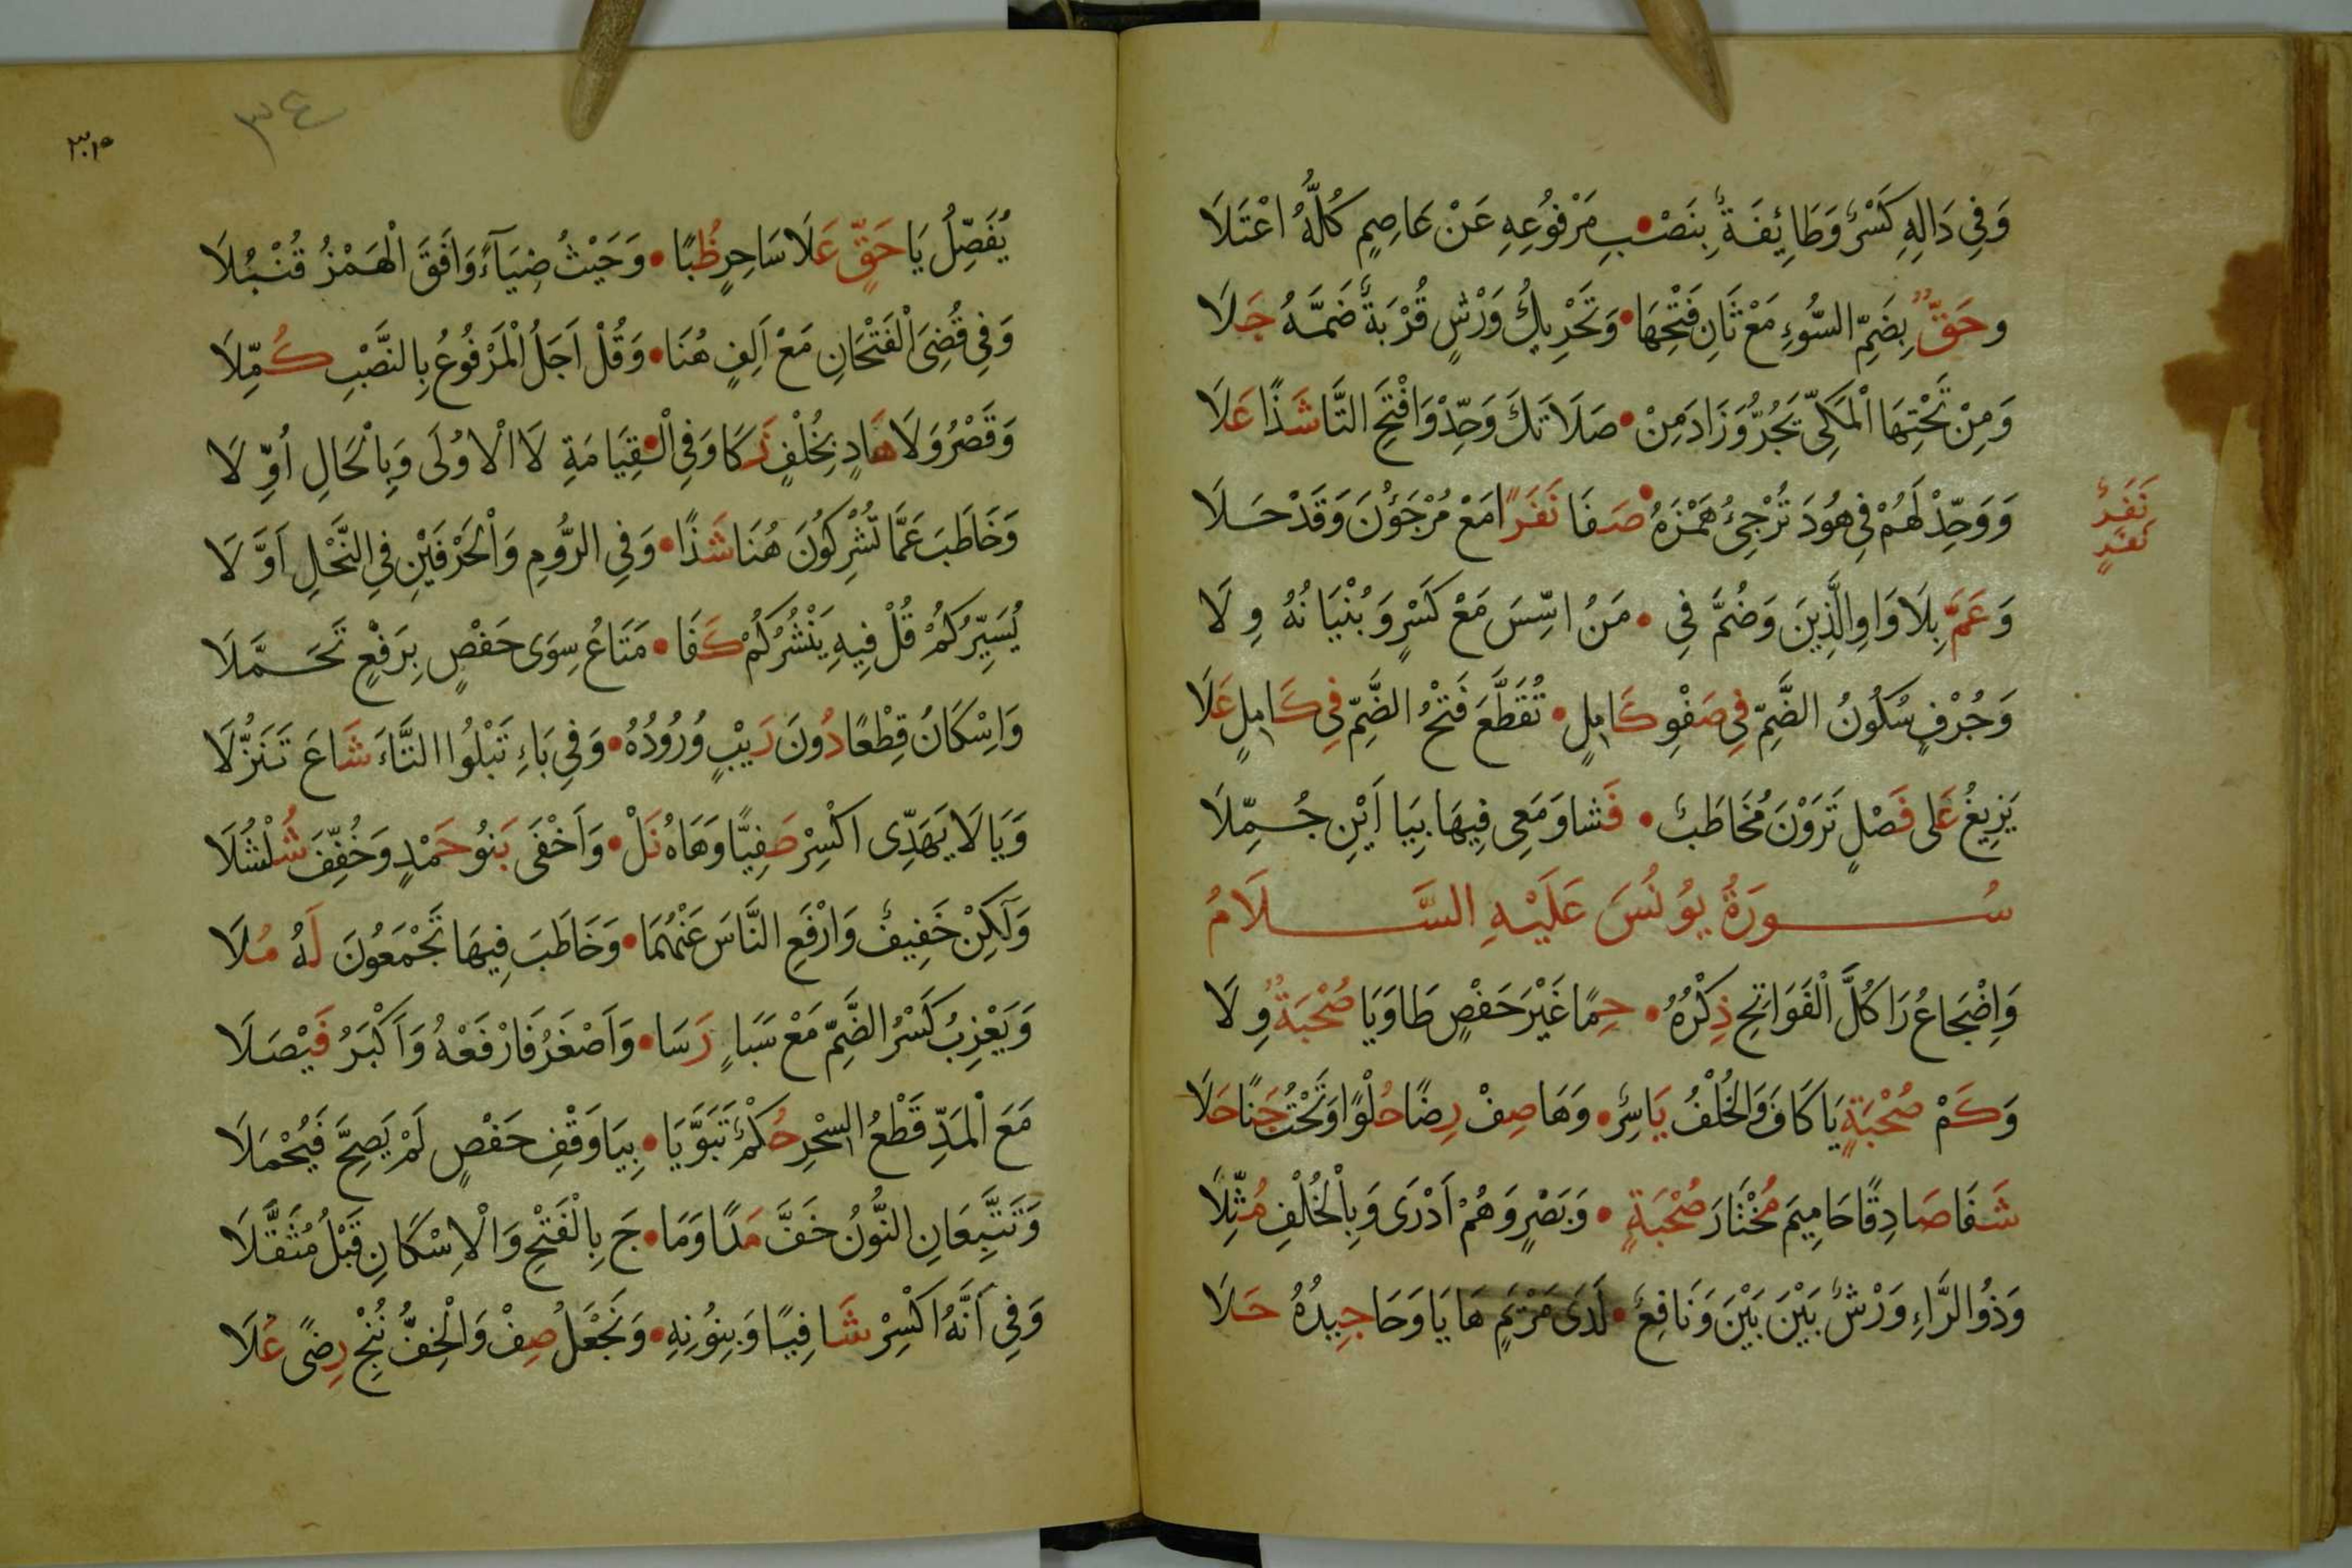 وَفِي دَالِهِ كَسْرٌ وَطَائِفَةٌ بِنَصْـبِ مَرْفُوعِهِ عَنْ عَاصِمٍ كُلُّهُ اعْتَلَا
وحَقٌّ بِضَمِّ السُّوءِ مَعْ ثَانِ فَتْحِهَا • وَتَحْرِيكُ وَرْشٍ قُرْبَةٌ ضَمَّهُ جَلَا
وَمِنْ تَحْتِهَا الْمَكِّيّ يَجُرُّ وَزَادَ مِنْ • صَلَاتَكَ وَحِّدْ وَافْتَحِ التَّا شَذًا عَلَا
وَوَحِّدْ لَهُمْ فِي هُودَ تُرْجِئُ هَمْزَهُ • صَفَا نَفَرًا مَعْ مُرْجَؤُنَ وَقَدْ حَلَا
نَفَرٌ
نَفَرٍ
وَعَمَّ بِلَا وَاوِ الَّذِينَ وَضُمَّ فِي • مَنُ اسِّسَ مَعْ كَسْرٍ وَبُنْيَانُهُ وِلَا
وَجُرْفٍ سُكُونُ الضَّمِّ فِي صَفْوِ كَامِلٍ • تُقَطَّعَ فَتْحُ الضَّمِّ فِي كَامِلٍ عَلَا
يَزِيغُ عَلَى فَصْلٍ تَرَوْنَ مُخَاطَبٌ • فَشَا وَمَعِي فِيهَا بِيَا أَيْنِ جُمِّلَا
سُورَةُ يُونُسَ عَلَيْهِ السَّلَامُ
وَاِضْجَاعُ رَا كُلَّ الْفَوَاتِحِ ذِكْرُهُ • حِمًا غَيْرَ حَفْصٍ طَا وَيَا صُحْبَةٌ وِلَا
وَكَمْ صُحْبَةٍ يَا كَافَ وَالْخُلْفُ يَاسِرٌ • وَهَا صِفْ رِضًا حُلْوًا وَتَحْتُ جَنًا حَلَا
شَفَا صَادِقًا حَامِيمَ مُخْتَارَ صُحْبَةٍ • وَبَصْرٍ وَهُمْ اَدْرَى وَبِالْخُلْفِ مُثِّلَا
وَذُو الرَّاءِ وَرْشٌ بَيْنَ بَيْنَ وَنَافِعٌ • لَدَى مَرْيَمٍ هَا يَا وَحَا جِيدُهُ حَلَا
٣٤
يُفَصِّلُ يَا حَقٍّ عَلَا سَاحِرٍ ظُبًا • وَحَيْثُ ضِيَآءً وَافَقَ الْهَمْزُ قُنْبُلَا
وَفِي قُضِيَ الْفَتْحَانِ مَعْ اَلِفٍ هُنَا • وَقُلْ اَجَلُ الْمَرْفُوعُ بِالنَّصْبِ كُمِّلَا
وَقَصْرُ وَلَا هَادٍ بِخُلْفٍ زَكَا وَفِي الْـقِيَامَةِ لَا الْاُولَى وَبِالْحَالِ أُوِّلَا
وَخَاطَبَ عَمَّا تُشْرِكُونَ هُنَا شَذًا • وَفِي الرُّومِ وَالْحَرْفَيْنِ فِي النَّحْلِ اَوَّلَا
يُسَيِّرُكُمْ قُلْ فِيهِ يَنْشُرُكُمْ كَفَا • مَتَاعُ سِوَى حَفْصٍ بِرَفْعٍ تَحَمَّلَا
وَاِسْكَانُ قِطْعًا دُونَ رَيْبٍ وُرُودُهُ • وَفِي بَاءِ تَبْلُوا التَّاءَ شَاعَ تَنَزُّلَا
وَيَا لَا يَهَدِّى اكْسِرْ صَفِيًّا وَهَاهُ نَلْ • وَاَخْفَى بَنُو حَمْدٍ وَخُفِّفَ شُلْشُلَا
وَلَكِنْ خَفِيفٌ وَارْفَعِ النَّاسَ عَنْهُمَا • وَخَاطَبَ فِيهَا تَجْمَعُونَ لَهُ مُلَا
وَيَعْزِبُ كَسْرُ الضَّمِّ مَعْ سَبَاٍ رَسَا • وَاَصْغَرُ فَارْفَعْهُ وَاَكْبَرُ فَيْصَلَا
مَعَ الْمَدِّ قَطْعُ السِّحْرِ حُكْمٌ تَبَوَّيَا • بِيَا وَقْفِ حَفْصٍ لَمْ يَصِحَّ فَيُحْمَلَا
وَتَتَّبِعَانِ النُّونُ خَفَّ مَدًا وَمَا • جَ بِالْفَتْحِ وَالْاِسْكَانِ قَبْلُ مُثَقَّلَا
وَفِي اَنَّهُ اكْسِرْ شَافِيًا وَبِنُونِهِ • وَنَجْعَلُ صِفْ وَالْخِفُّ نُنْجِ رِضًى عُلَا